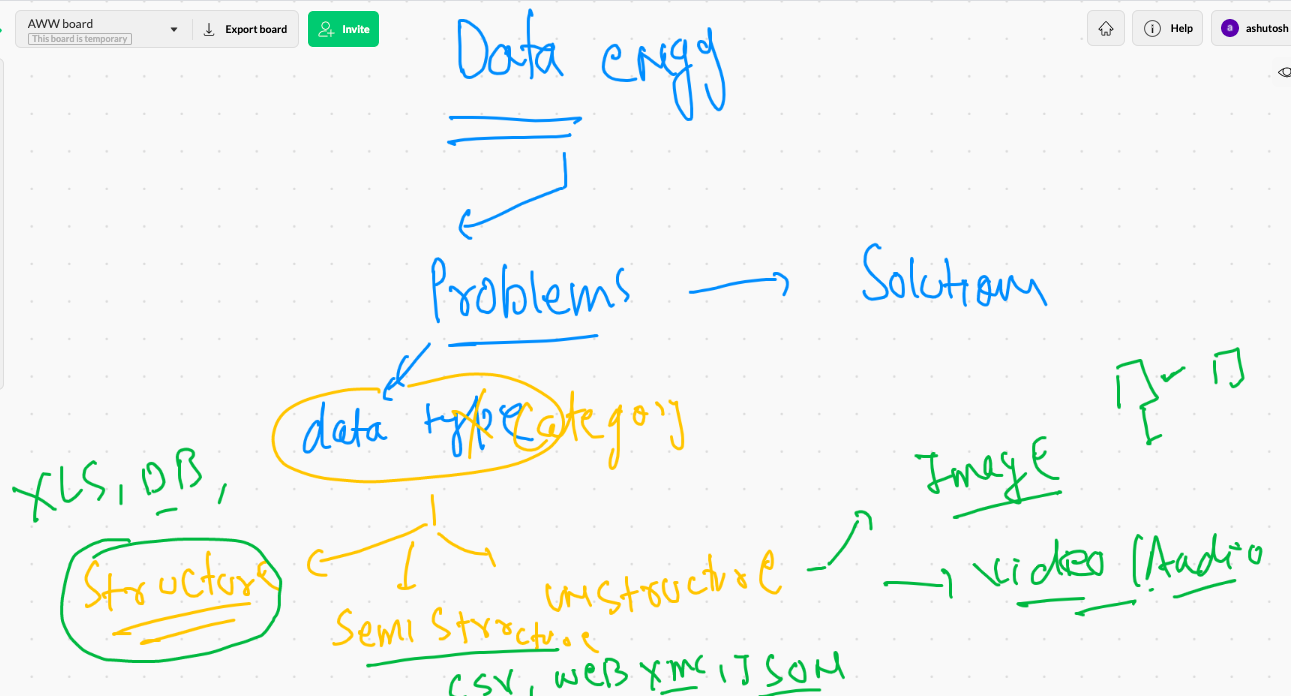 AWW board
This board is temporary
Export board
Invite
Help
a
ashutosh
Data engg
Problems → Solution
data type Category
XLS, DB,
Image
Structure
Semi Structure
unstructure
video / Audio
CSV, WEB XML, JSON